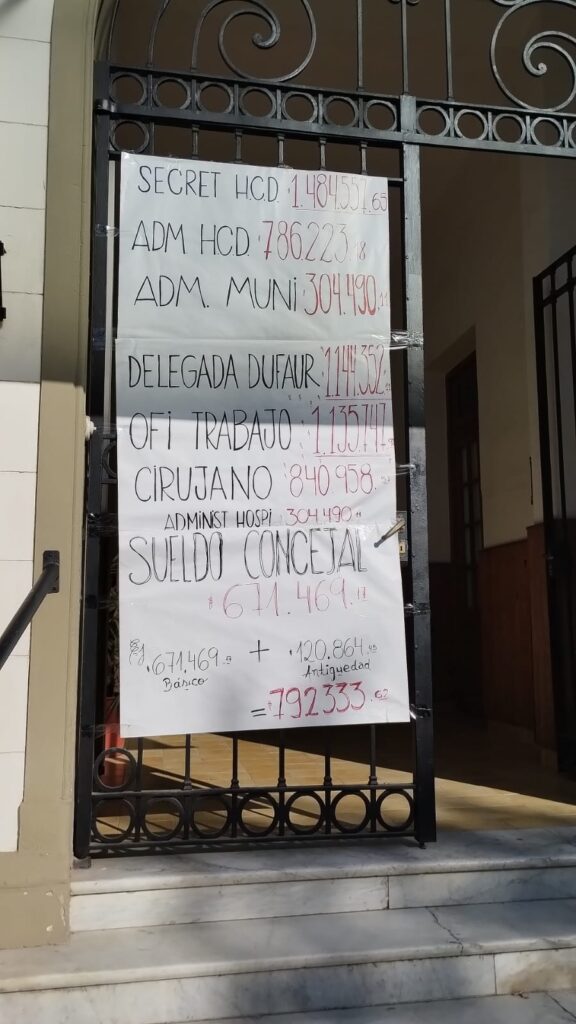 SECRET H.C.D. 1.484.557,65
ADM HCD. 786.223,18
ADM. MUNI 304.490,11
DELEGADA DUFAUR 1.144.352
OFI TRABAJO 1.135.747
CIRUJANO 840.958
ADMINIST HOSPI 304.490
SUELDO CONCEJAL
$671.469
Ej 671.469 + 120.864
Básico Antiguedad
= $792333.62